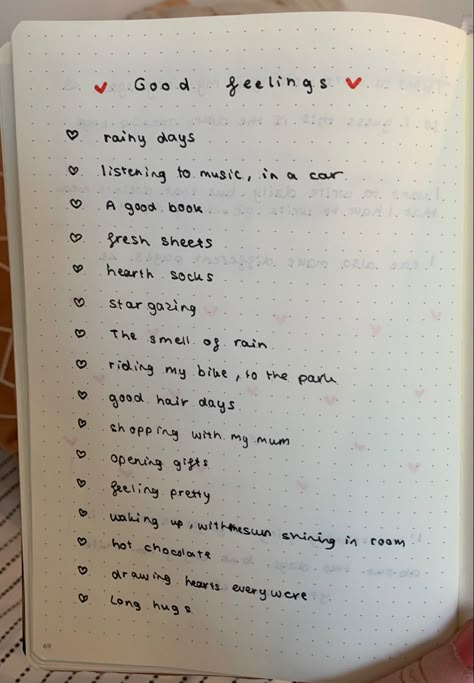 Good feelings
rainy days
listening to music, in a car
A good book
fresh sheets
hearth socks
stargazing
The smell of rain
riding my bike, to the park
good hair days
shopping with my mum
opening gifts
feeling pretty
waking up, with the sun shining in room
hot chocolate
drawing hearts everywere
Long hugs